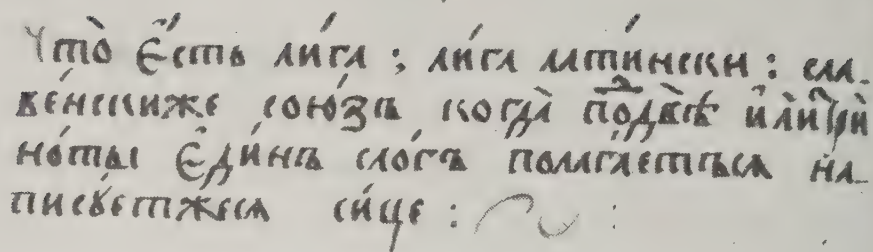 Что̀ є҆́сть ли́га ; ли́га лати́нски : сла-
ве́нскиже сою́зъ когда̀ под̾двѣ̀ и҆лѝ трѝ
но́ты є҆ди́нъ сло́гъ полага́етъсѧ на-
писꙋ́етжесѧ си́це :